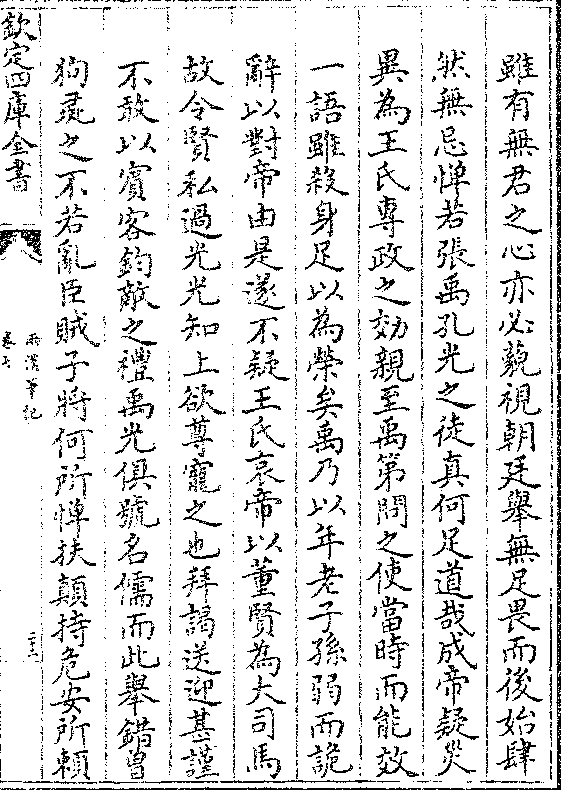 雖有無君之心亦必藐視朝廷舉無足畏而後始肆
然無忌憚若張禹孔光之徒真何足道哉成帝疑災
異為王氏專政之効親至禹第問之使當時而能效
一語雖殺身足以為榮矣禹乃以年老子孫弱而詭
辭以對帝由是遂不疑王氏哀帝以董賢為大司馬
故令賢私過光光知上欲尊寵之也拜謁送迎甚謹
不敢以賓客鈞敵之禮禹光俱號名儒而此舉錯曾
狗彘之不若亂臣賊子將何所憚扶顛持危安所賴
欽定四庫全書
筆記
卷七